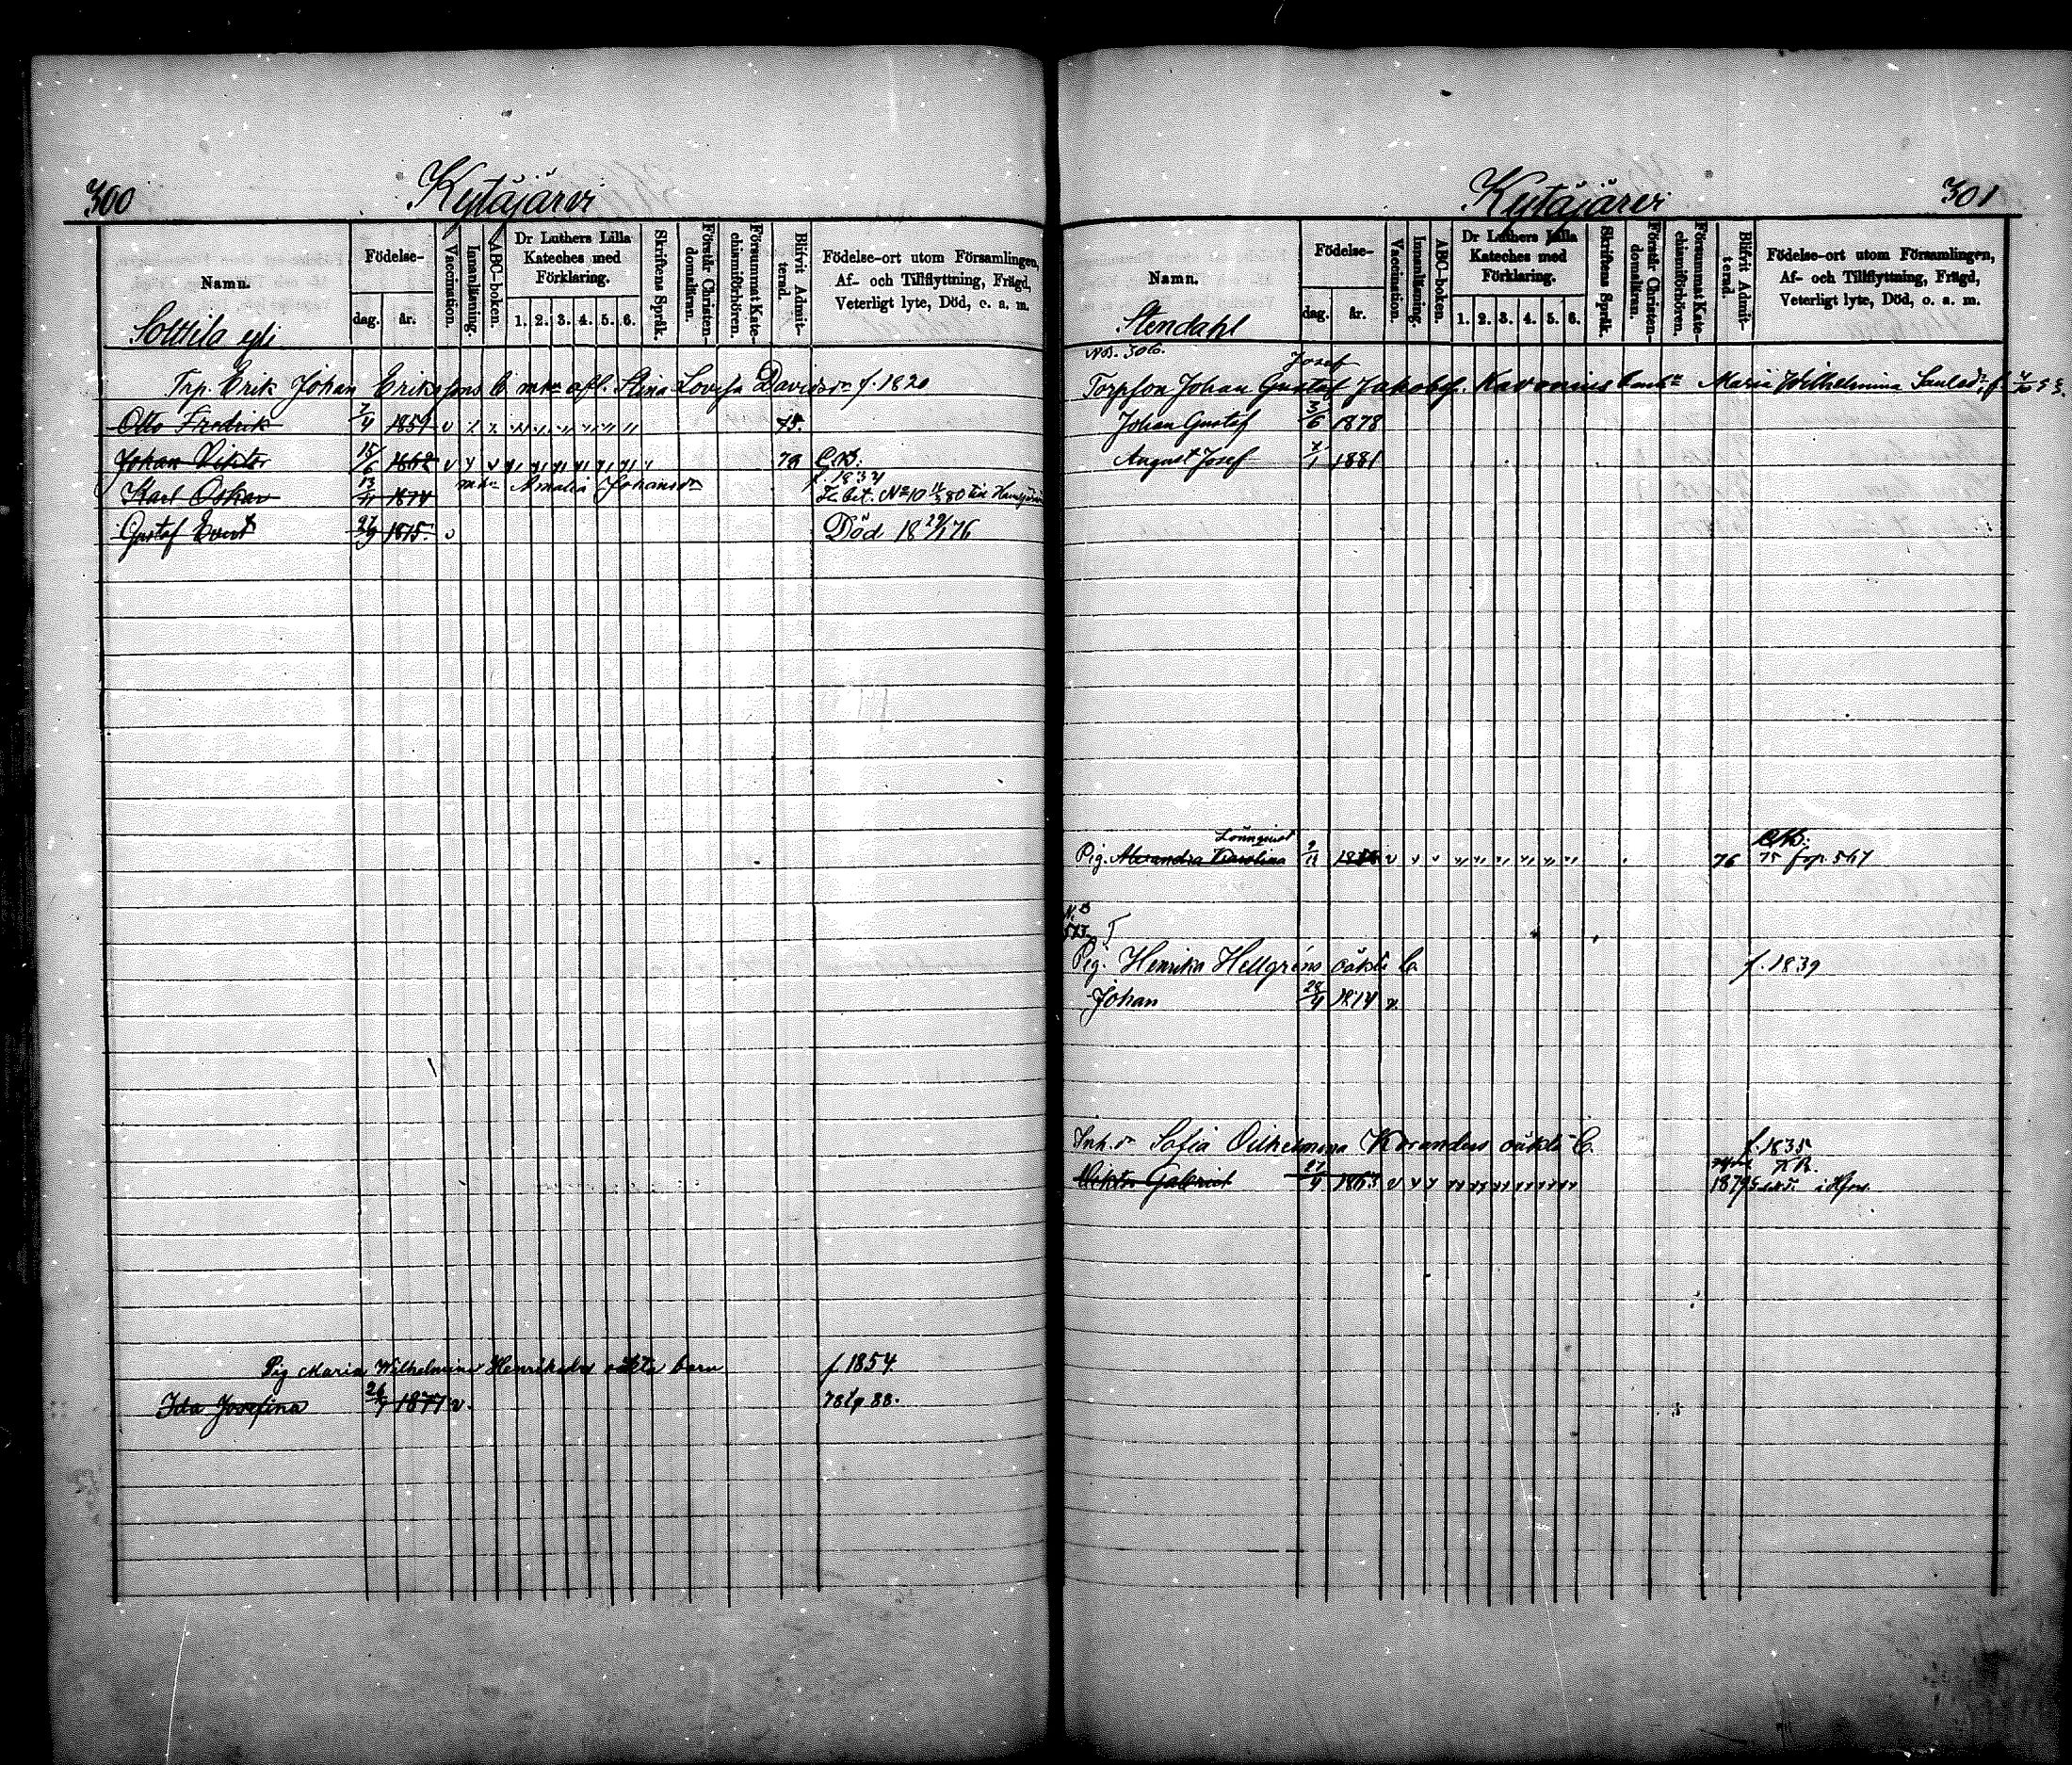 300
Kytäjärvi
Namn.
Födelse-
dag.
år.
Vaccination.
Innanläsning.
ABC-boken.
Dr Luthers Lilla
Kateches med
Förklaring.
1. 2. 3. 4. 5. 6.
Skriftens Språk.
Förstår Christen-
domsläran.
Försummat Kate-
chismiförhören.
Blifvit Admit-
terad.
Födelse-ort utom Församlingen,
Af- och Tillflyttning, Frägd,
Veterligt lyte, Död, o. a. m.
Sotttila
Trp. Erik Johan Erikssons b. m. Stina Lovisa Davidsdr f. 1820
Otto Fredrik 7/4 1859 v 75.
Johan Viktor 15/6 1862 v v v 78
mdr Amalia Johansdr f. 1834
Karl Oskar 13/11 1874
Gustaf Evert 26/9 1875 v Död 18 29/1 76
Pig Maria Wilhelmina oäkta barn f 1854
Ida Josefina 26/7 1877 v. 78 tp 88.
301
Kytäjärvi
Namn.
Födelse-
dag.
år.
Vaccination.
Innanläsning.
ABC-boken.
Dr Luthers Lilla
Kateches med
Förklaring.
1. 2. 3. 4. 5. 6.
Skriftens Språk.
Förstår Christen-
domsläran.
Försummat Kate-
chismiförhören.
Blifvit Admit-
terad.
Födelse-ort utom Församlingen,
Af- och Tillflyttning, Frägd,
Veterligt lyte, Död, o. a. m.
Stendahl
306.
Josef
Torpson Johan Gustaf Maria Wilhelmina
Johan Gustaf 3/6 1878
August Josef 7/1 1881
Lönnqvist
Pig. Alexandra Karolina v v v 76 75 frp. 547
Pig. Henrika Hellgréns oäkta b. f. 1839
Johan 28/4 1874 v.
Inh. dr Sofia Vilhelmina oäkta b. f. 1835
Viktor Gabriel 27/4 1863 v v v 1879